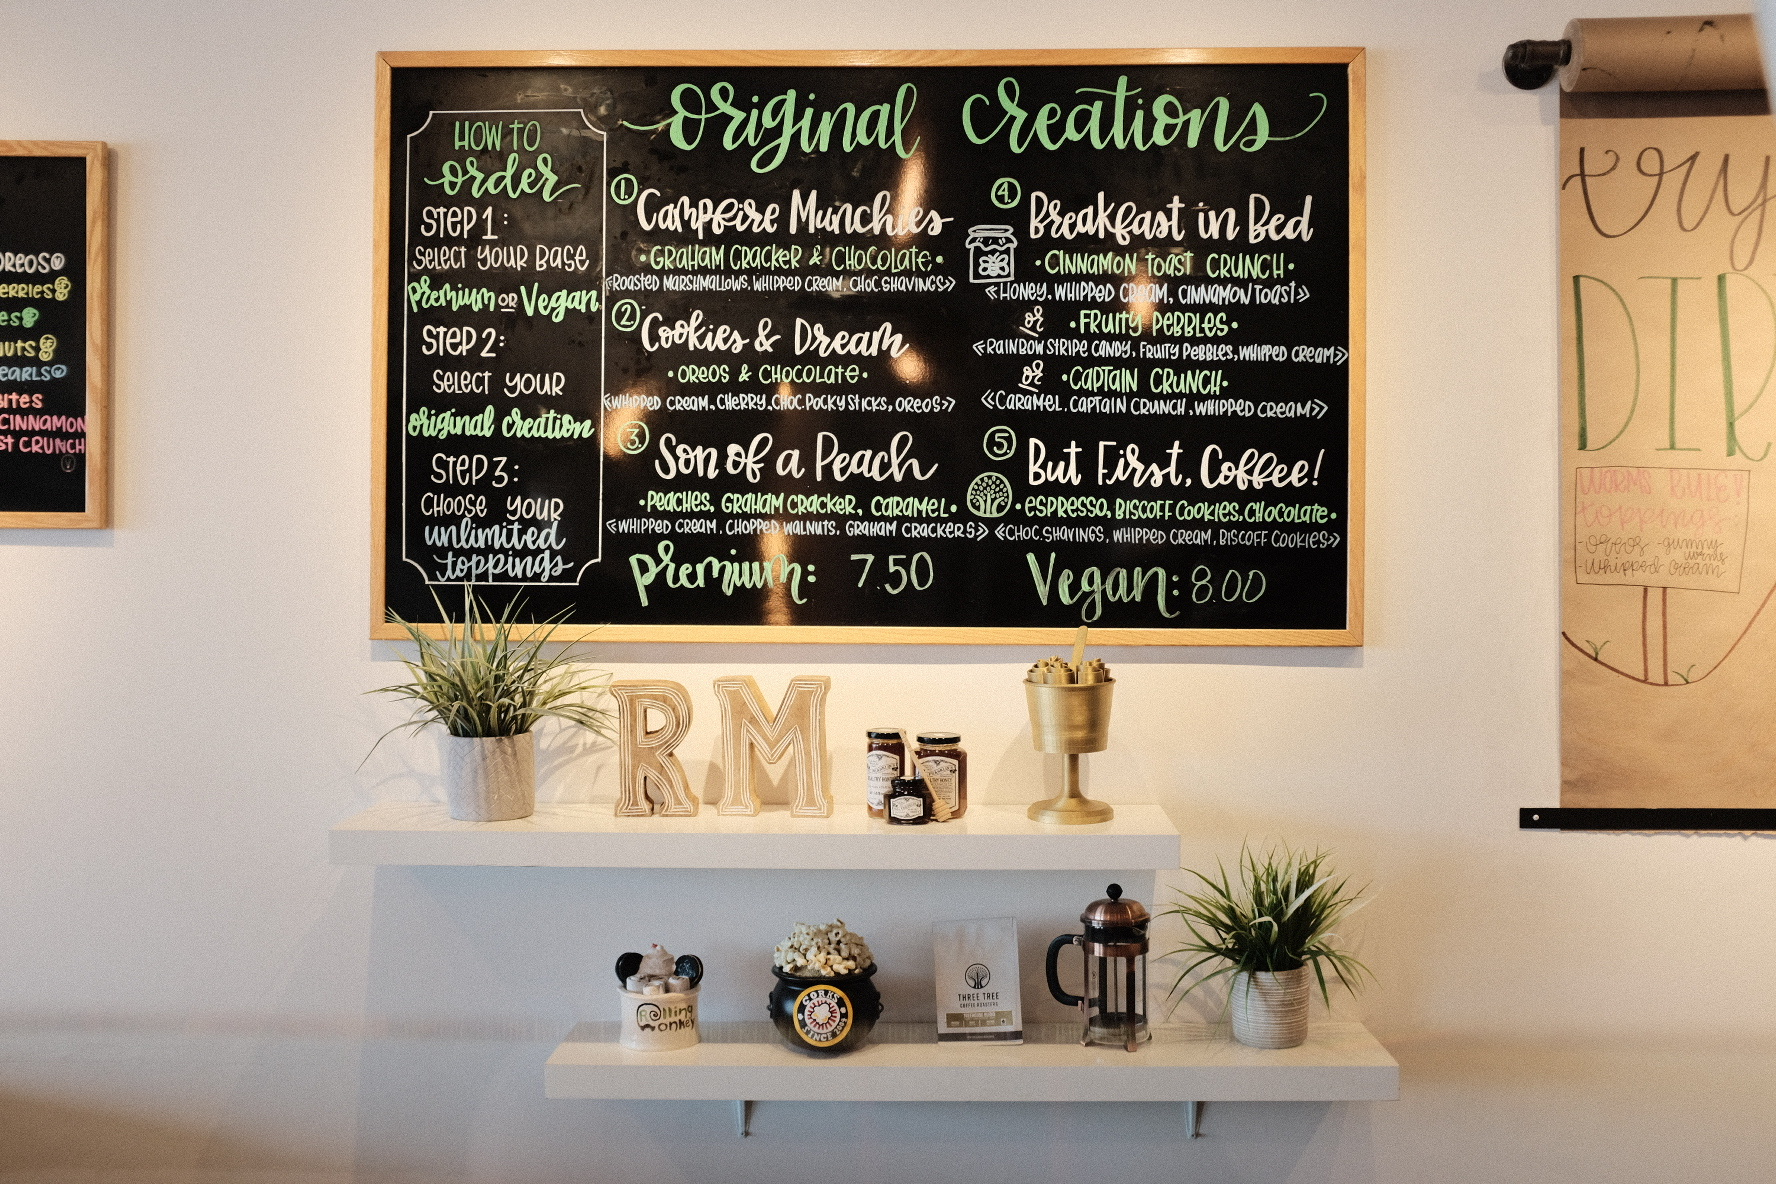 OREOS
ERRIES
ES
NUTS
EARLS
BITES
CINNAMON
ST CRUNCH
HOW TO
order
STEP 1:
SELECT YOUR BASE
Premium OR Vegan
STEP 2:
SELECT YOUR
original creation
STEP 3:
CHOOSE YOUR
unlimited
toppings
Original Creations
1. Campfire Munchies
• GRAHAM CRACKER & CHOCOLATE •
«ROASTED MARSHMALLOWS, WHIPPED CREAM, CHOC. SHAVINGS»
2. Cookies & Dream
• OREOS & CHOCOLATE •
«WHIPPED CREAM, CHERRY, CHOC. POCKY STICKS, OREOS»
3. Son of a Peach
• PEACHES, GRAHAM CRACKER, CARAMEL •
«WHIPPED CREAM, CHOPPED WALNUTS, GRAHAM CRACKERS»
Premium: 7.50
4. Breakfast in Bed
• CINNAMON TOAST CRUNCH •
«HONEY, WHIPPED CREAM, CINNAMON TOAST»
or • FRUITY PEBBLES •
«RAINBOW STRIPE CANDY, FRUITY PEBBLES, WHIPPED CREAM»
or • CAPTAIN CRUNCH •
«CARAMEL, CAPTAIN CRUNCH, WHIPPED CREAM»
5. But First, Coffee!
• ESPRESSO, BISCOFF COOKIES, CHOCOLATE •
«CHOC. SHAVINGS, WHIPPED CREAM, BISCOFF COOKIES»
Vegan: 8.00
try
DIR
WORMS RULE!
toppings:
-Oreos -gummy worms
-whipped cream
RM
Rolling
Monkey
CORKS
SINCE
THREE TREE
COFFEE ROASTERS